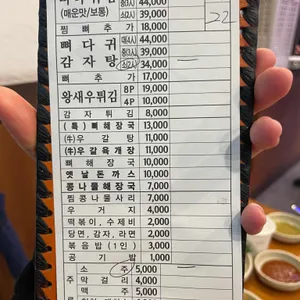 중3시 44,000
(매운맛/보통) 소2시 39,000
찜 뼈 추 가 18,000
22
뼈 다 귀 대4시 44,000
중3시 39,000
감 자 탕 소2시 34,000
뼈 추 가 17,000
왕새우튀김 8P 19,000
4P 10,000
감 자 튀 김 8,000
(특) 뼈 해 장 국 13,000
(牛)우 갈 탕 11,000
(牛)우 갈 육 개 장 11,000
뼈 해 장 국 10,000
옛 날 돈 까 스 10,000
콩 나 물 해 장 국 7,000
찜 콩 나 물 사 리 7,000
우 거 지 4,000
떡볶이, 수제비 2,000
당면, 감자, 라면 2,000
볶 음 밥 (1인) 3,000
공 기 밥 1,000
소 주 5,000
막 걸 리 4,000
주
맥 주 5,000